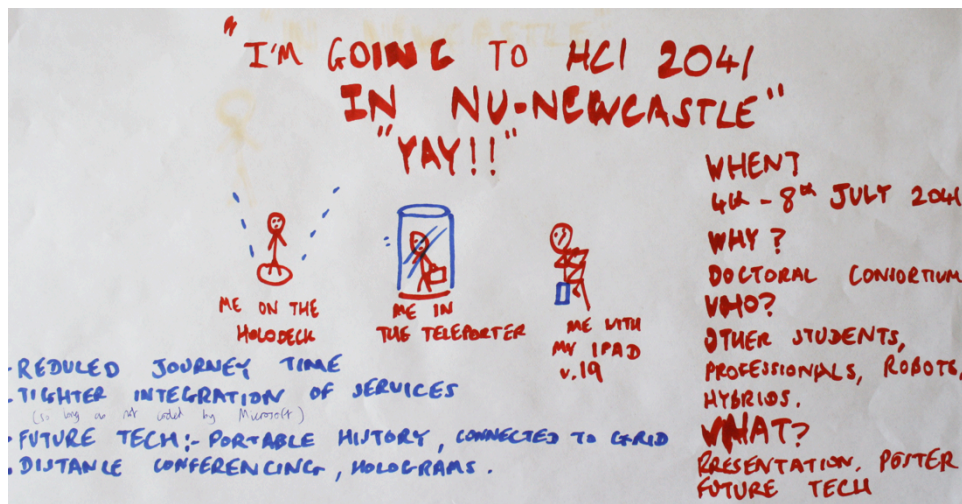 "I'M GOING TO HCI 2041
IN NU-NEWCASTLE"
"YAY!!"
ME ON THE
HOLODECK
ME IN
THE TELEPORTER
ME WITH
MY IPAD
v.19
- REDULED JOURNEY TIME
- TIGHTER INTEGRATION OF SERVICES
(so long as not coded by Microsoft)
- FUTURE TECH:- PORTABLE HISTORY, CONNECTED TO GRID
- DISTANCE CONFERENCING, HOLOGRAMS.
WHEN?
4th - 8th JULY 2041
WHY?
DOCTORAL CONSORTIUM
WHO?
OTHER STUDENTS,
PROFESSIONALS, ROBOTS,
HYBRIDS.
WHAT?
PRESENTATION, POSTER
FUTURE TECH